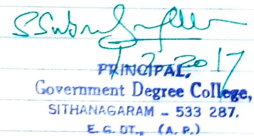 7.2.2017
PRINCIPAL,
Government Degree College,
SITHANAGARAM - 533 287.
E. G. DT., (A. P.)